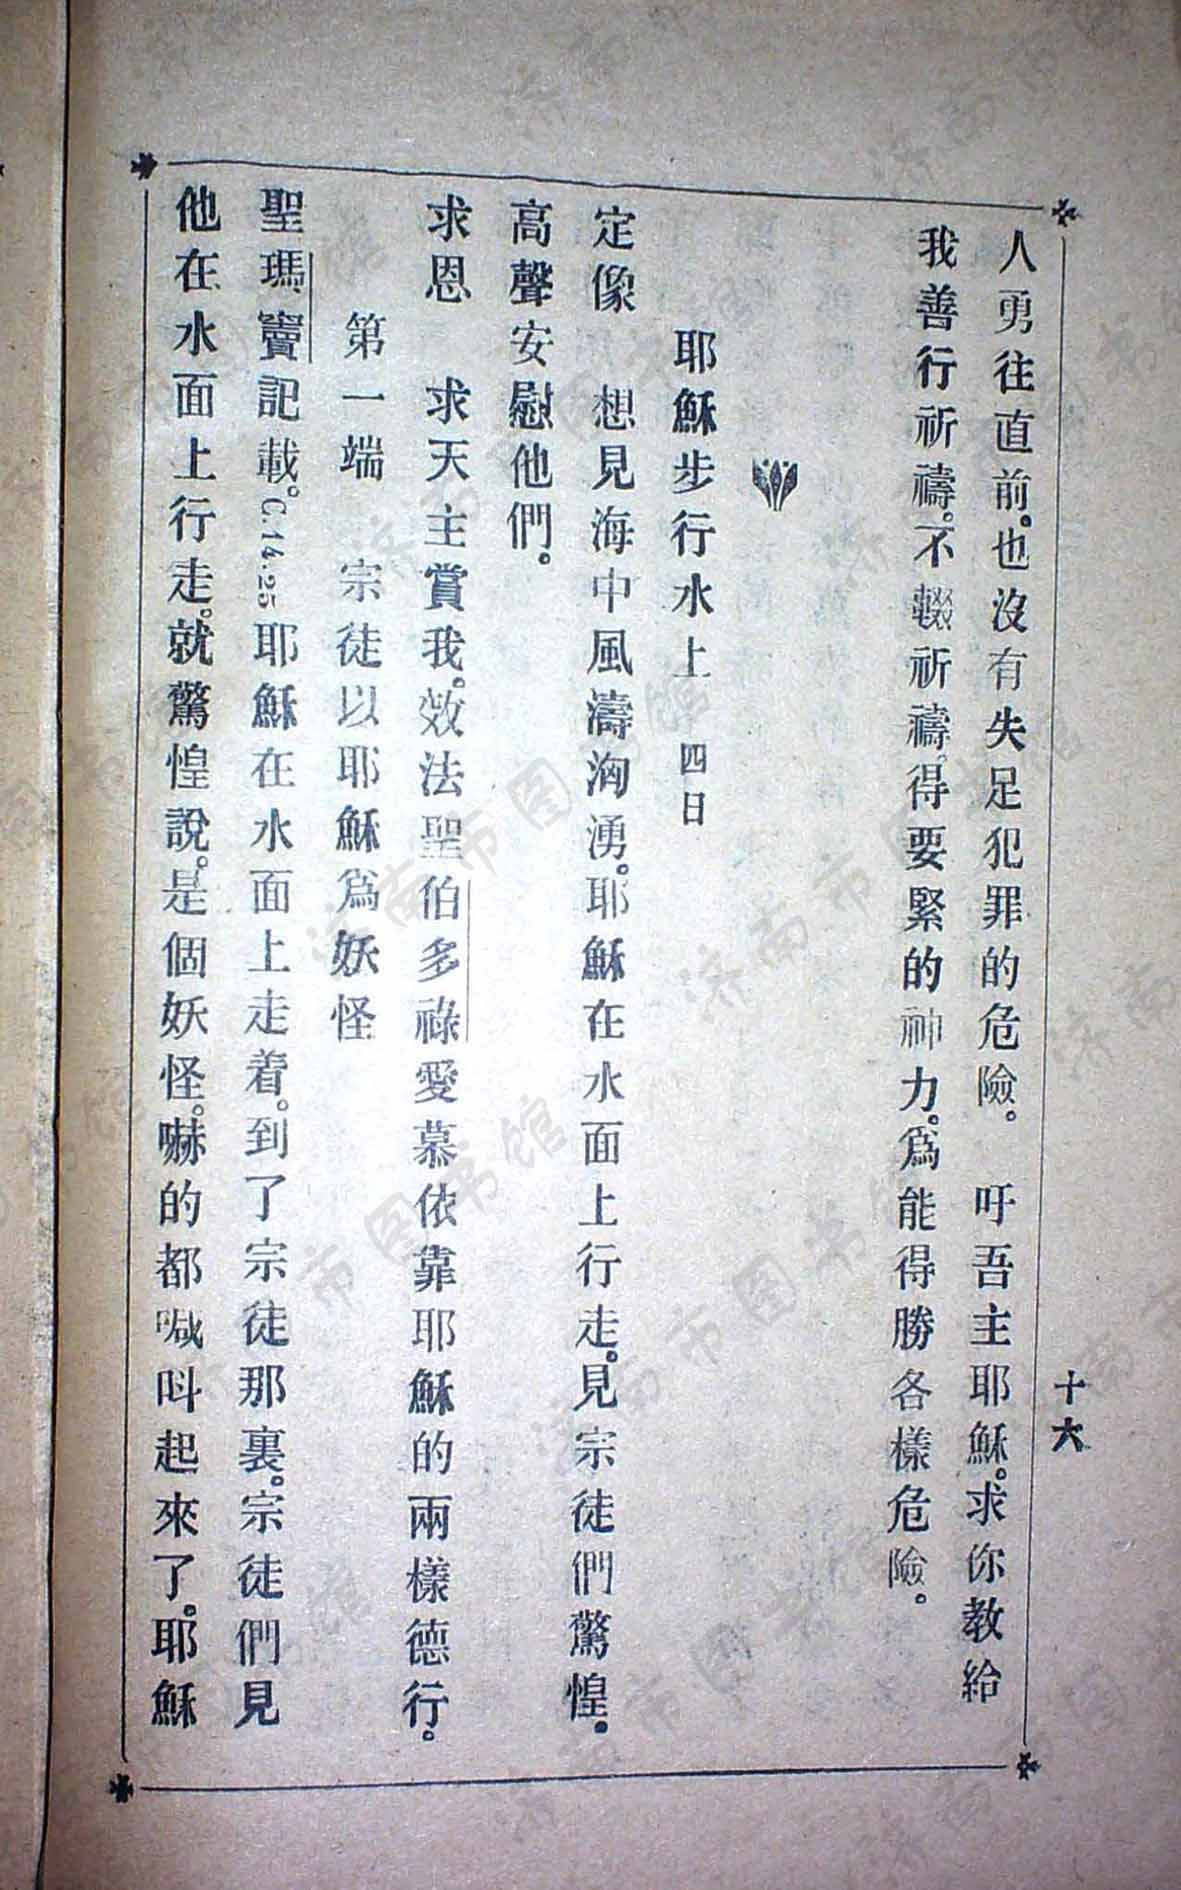 十六
人勇往直前。也沒有失足犯罪的危險。　吁吾主耶穌。求你教給
我善行祈禱。不輟祈禱。得要緊的神力。爲能得勝各樣危險。
耶穌步行水上　四日
定像　想見海中風濤洶湧。耶穌在水面上行走。見宗徒們驚惶。
高聲安慰他們。
求恩　求天主賞我。效法聖伯多祿愛慕依靠耶穌的兩樣德行。
第一端　宗徒以耶穌爲妖怪
聖瑪竇記載。C.14.25耶穌在水面上走着。到了宗徒那裏。宗徒們見
他在水面上行走。就驚惶說。是個妖怪。嚇的都喊呌起來了。耶穌
济南市图书馆